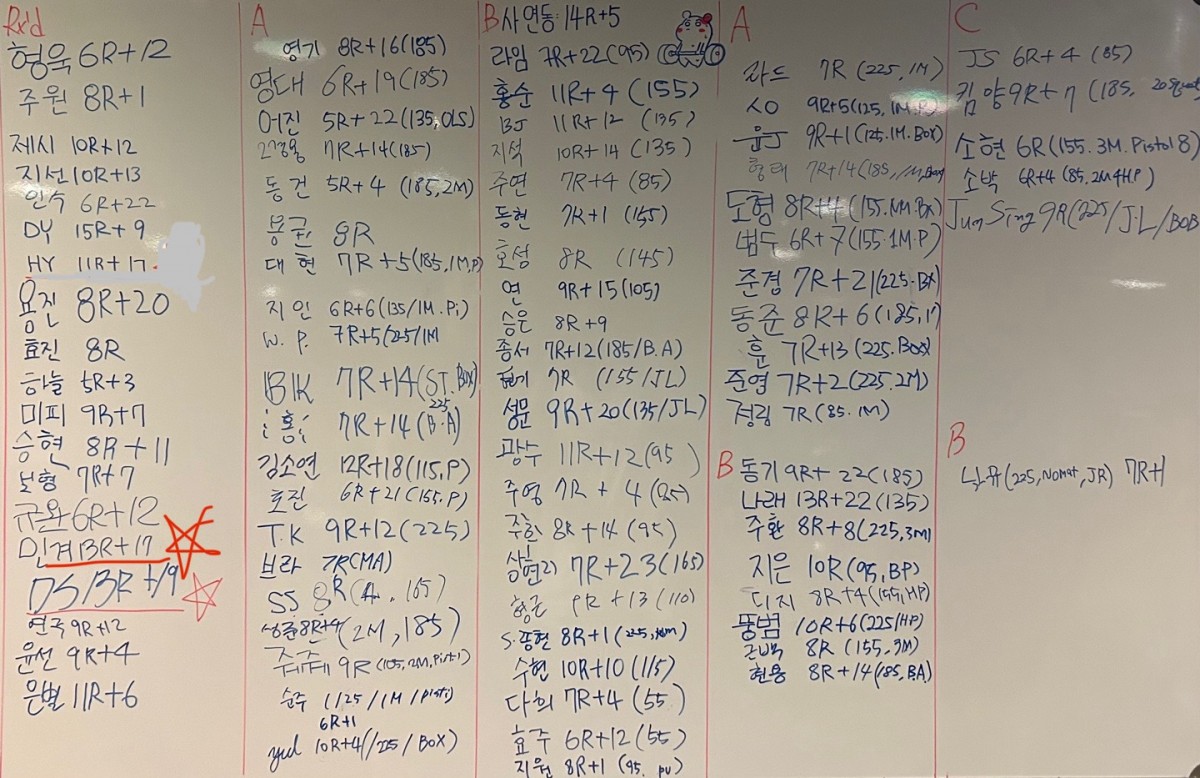 Rx'd
형욱 6R+12
주원 8R+1
제시 10R+12
지선 10R+13
인수 6R+22
DY 15R+9
HY 11R+17
용진 8R+20
효진 8R
하늘 5R+3
미피 9R+7
승현 8R+11
보형 7R+7
규완 6R+12
민경 13R+17
DS 13R+19
연국 9R+12
윤선 9R+4
은별 11R+6
A
영기 8R+16(185)
영대 6R+19(185)
어진 5R+22(135,OLS)
7R+14(185)
동건 5R+4 (185,2M)
봉권 8R
대현 7R+5(185,1M,P)
지인 6R+6(135/1M.Pi)
W.P. 7R+5(225/1M
BK 7R+14(ST.BOX)
홍 7R+14(225 B.A)
김소연 12R+18(115,P)
호진 6R+21(155,P)
T.K 9R+12(225)
브라 7R(MA)
SS 8R(A.165)
상준 8R+4(2M,185)
쥬쥬
9R(105,2M,Pisti)
순주 1125/1M/pisti)
6R+1
yul 10R+4(/225/BOX)
B 사연동:14R+5
라임 7R+22(95)
홍순 11R+4(155)
BJ 11R+12 (135)
지석 10R+14 (135)
주연 7R+4 (85)
동현 7R+1 (155)
호성 8R (145)
연 9R+15(105)
승은 8R+9
종서 7R+12(185/B.A)
7R (155/JL)
성문 9R+20(135/JL)
광수 11R+12(95)
주영 7R+4
주한 8R+14(95)
상현리 7R+23(165)
형근 9R+13(110)
S.종현 8R+1
수현 10R+10(115)
다희 7R+4(55)
효주 6R+12(55)
지원 8R+1 (95. pu)
A
라드 7R(225,1M)
SO 9R+5(125,1M.P)
윤J 9R+1(125.1M.BOX)
형태 7R+14(185,1M,Box)
도형 8R+4(155.NM.BX)
범수 6R+7(155.1M.P)
준경 7R+21(225.BX)
동준 8R+6(185,1
훈 7R+13(225.Box)
준영 7R+2(225.2M)
정림 7R(85.1M)
B 동기 9R+22(185)
나래 13R+22(135)
주환 8R+8(225,3M)
지은 10R(95,BP)
디지 8R+4(155,HP)
뚱범 10R+6(225/HP)
근백 8R (155,3M)
현용 8R+14(185,B.A)
C
JS 6R+4(85)
킴양 9R+7(185,
소현 6R(155.3M.Pistol 8)
소박 6R+4(85.2M4H.P)
Jun Sing 9R(225/J.L/BOB
B
(225,Nomat,JR) 7R+1